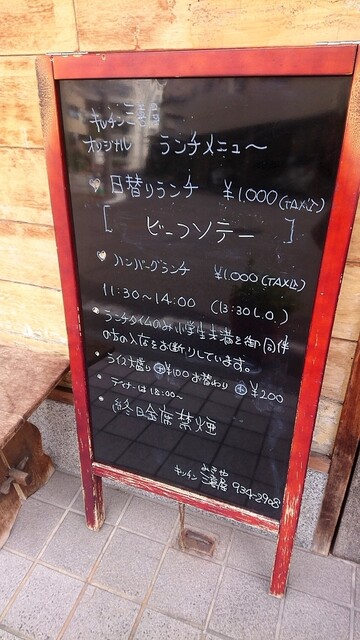 キッチン三喜屋
オリジナル ランチメニュ～
日替りランチ ¥1.000 (TAX込)
[ ビーフソテー ]
ハンバーグランチ ¥1.000 (TAX込)
11:30～14:00 (13:30 L.O.)
・ランチタイムのみ小学生未満を御同伴
の方の入店をお断りしています。
・ライス大盛り⊕¥100 お替わり⊕¥200
・ディナーは18:00～
・終日全席禁煙
みきや
キッチン三喜屋 934-2908